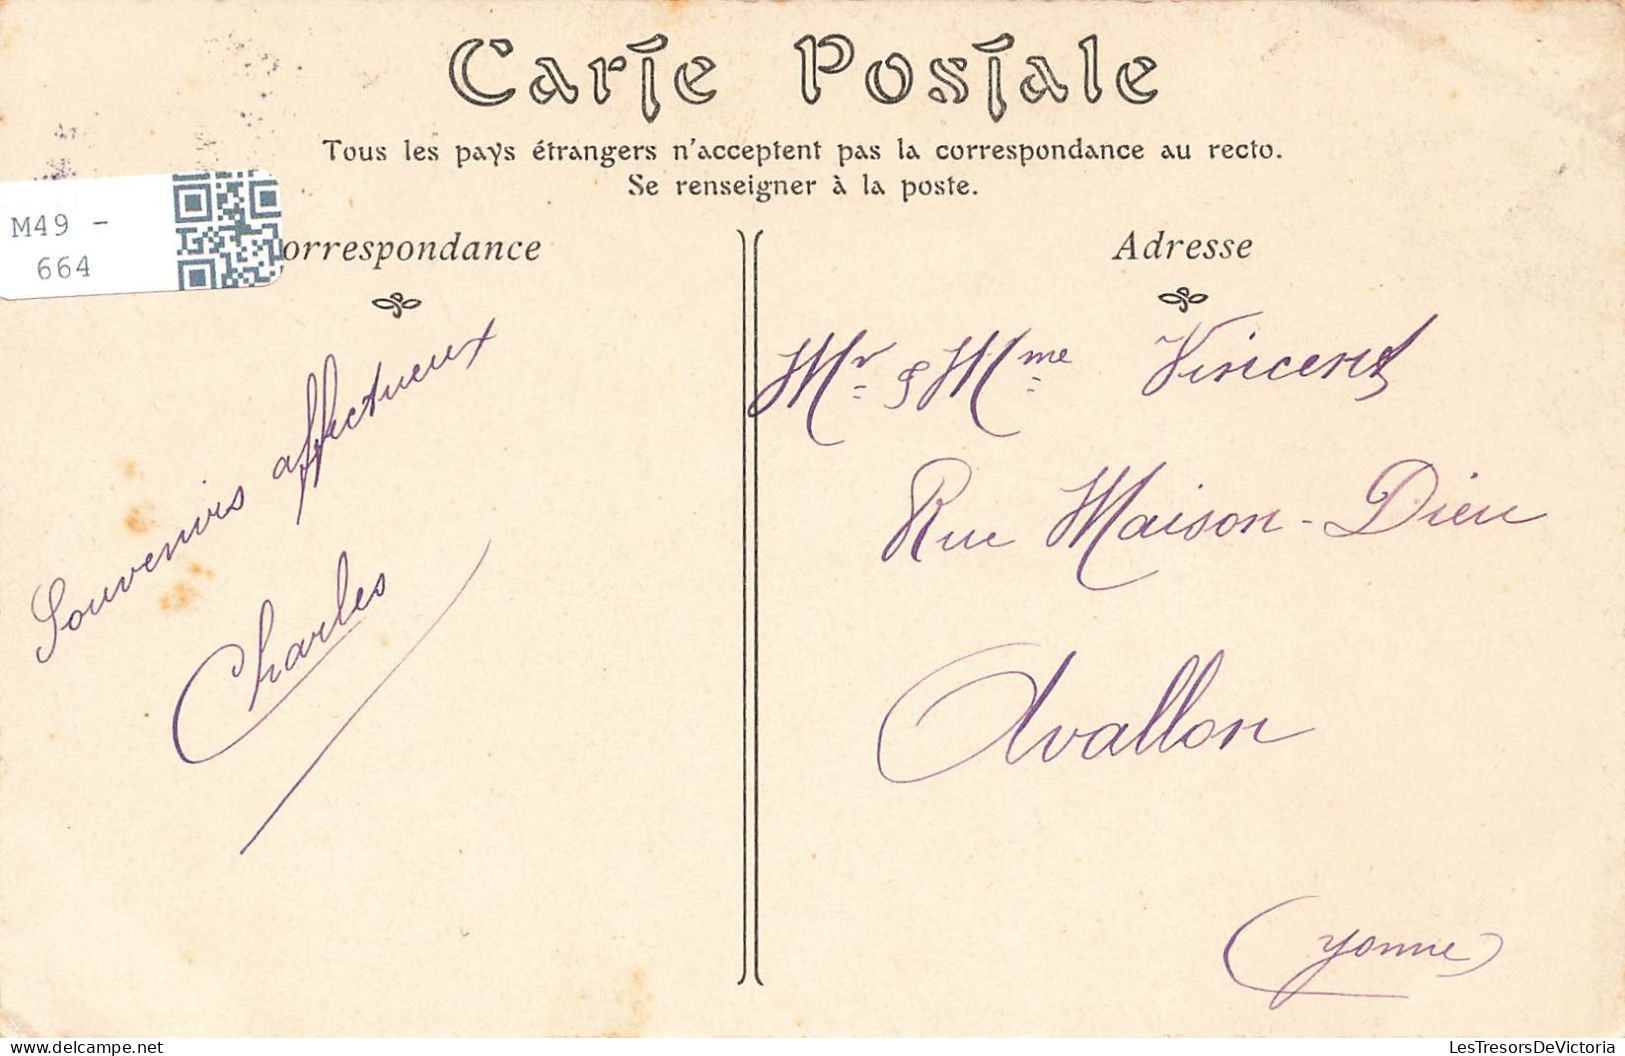 Carte Postale
Tous les pays étrangers n'acceptent pas la correspondance au recto.
Se renseigner à la poste.
M49 -
664
orrespondance
Adresse
Souvenirs affectueux
Charles
Mr & Mme Vincent
Rue Maison-Dieu
Avallon
(Yonne)
LesTresorsDeVictoria